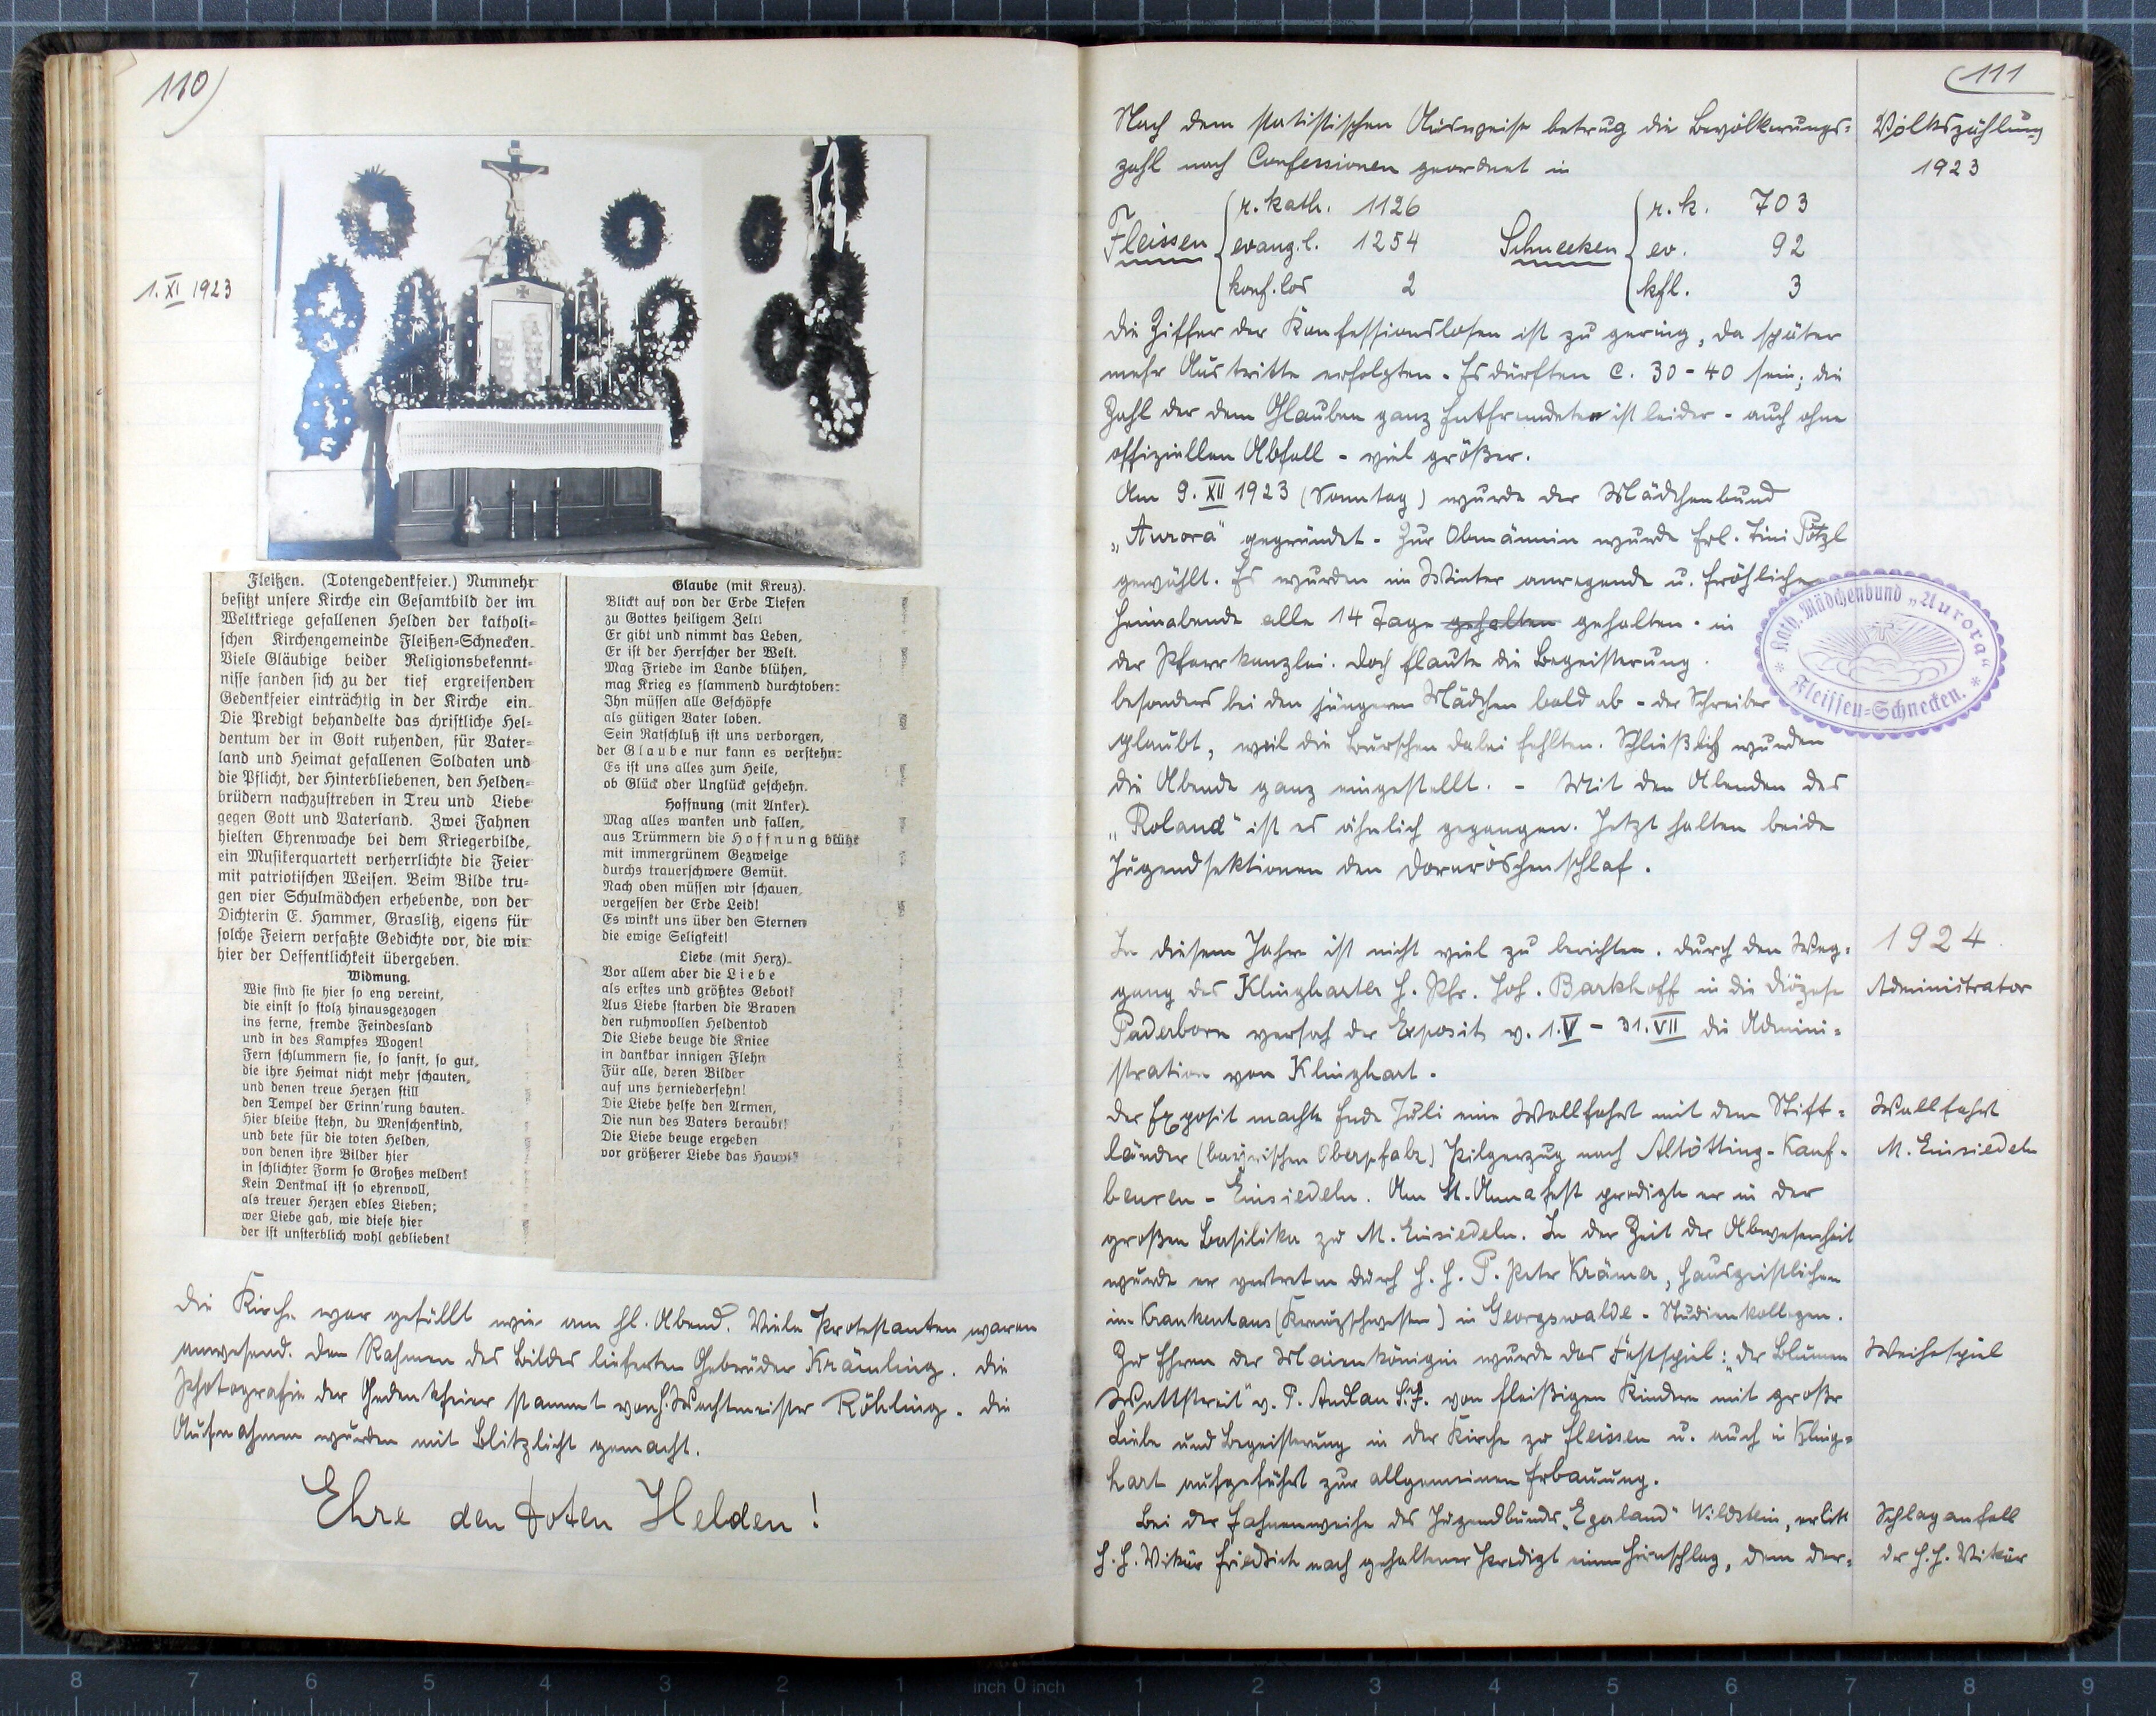 110)
1. XI 1923
Fleißen. (Totengedenkfeier.) Nunmehr
besitzt unsere Kirche ein Gesamtbild der im
Weltkriege gefallenen Helden der katholi-
schen Kirchengemeinde Fleißen-Schnecken.
Viele Gläubige beider Religionsbekennt-
nisse fanden sich zu der tief ergreifenden
Gedenkfeier einträchtig in der Kirche ein.
Die Predigt behandelte das christliche Hel-
dentum der in Gott ruhenden, für Vater-
land und Heimat gefallenen Soldaten und
die Pflicht, der Hinterbliebenen, den Helden-
brüdern nachzustreben in Treu und Liebe
gegen Gott und Vaterland. Zwei Fahnen
hielten Ehrenwache bei dem Kriegerbilde,
ein Musikerquartett verherrlichte die Feier
mit patriotischen Weisen. Beim Bilde tru-
gen vier Schulmädchen erhebende, von der
Dichterin E. Hammer, Graslitz, eigens für
solche Feiern verfaßte Gedichte vor, die wir
hier der Oeffentlichkeit übergeben.
Widmung.
Wie sind sie hier so eng vereint,
die einst so stolz hinausgezogen
ins ferne, fremde Feindesland
und in des Kampfes Wogen!
Fern schlummern sie, so sanft, so gut,
die ihre Heimat nicht mehr schauten,
und denen treue Herzen still
den Tempel der Erinn'rung bauten.
Hier bleibe stehn, du Menschenkind,
und bete für die toten Helden,
von denen ihre Bilder hier
in schlichter Form so Großes melden!
Kein Denkmal ist so ehrenvoll,
als treuer Herzen edles Lieben;
wer Liebe gab, wie diese hier
der ist unsterblich wohl geblieben!
Glaube (mit Kreuz).
Blickt auf von der Erde Tiefen
zu Gottes heiligem Zelt!
Er gibt und nimmt das Leben,
Er ist der Herrscher der Welt.
Mag Friede im Lande blühen,
mag Krieg es flammend durchtoben:
Ihn müssen alle Geschöpfe
als gütigen Vater loben.
Sein Ratschluß ist uns verborgen,
der Glaube nur kann es verstehn:
Es ist uns alles zum Heile,
ob Glück oder Unglück geschehn.
Hoffnung (mit Anker).
Mag alles wanken und fallen,
aus Trümmern die Hoffnung blüht
mit immergrünem Gezweige
durchs trauerschwere Gemüt.
Nach oben müssen wir schauen,
vergessen der Erde Leid!
Es winkt uns über den Sternen
die ewige Seligkeit!
Liebe (mit Herz).
Vor allem aber die Liebe
als erstes und größtes Gebot!
Aus Liebe starben die Braven
den ruhmvollen Heldentod
Die Liebe beuge die Kniee
in dankbar innigen Flehn
Für alle, deren Bilder
auf uns herniedersehn!
Die Liebe helfe den Armen,
Die nun des Vaters beraubt!
Die Liebe beuge ergeben
vor größerer Liebe das Haupt!
Die Kirche war gefüllt wie am hl. Abend. Viele Protestanten waren
anwesend. Den Rahmen des Bildes lieferten Gebrüder Krämling. Die
Photografie der Gedenkfeier stammt von H. Wachtmeister Röhling. Die
Aufnahmen wurden mit Blitzlicht gemacht.
Ehre den toten Helden!
(111
Nach dem statistischen Ausweise betrug die Bevölkerungs-
zahl nach Confessionen geordnet in
Volkszählung
1923
r. kath. 1126
r. k. 703
Fleissen evang. l. 1254
Schnecken ev. 92
konf. los 2
kfl. 3
Die Ziffer der Konfessionslosen ist zu gering, da später
mehr Austritte erfolgten. Es dürften c. 30-40 sein; die
Zahl der dem Glauben ganz Entfremdeten ist leider - auch ohne
offiziellen Abfall - viel größer.
Am 9. XII 1923 (Sonntag) wurde der Mädchenbund
„Aurora" gegründet. Zur Obmännin wurde Frl. Tini Pötzl
gewählt. Es wurden im Winter anregende u. fröhliche
Heimabende alle 14 Tage gehalten gehalten. in
der Pfarrkanzlei. Doch flaute die Begeisterung
besonders bei den jüngeren Mädchen bald ab - der Schreiber
glaubt, weil die Burschen dabei fehlten. Schließlich wurden
die Abende ganz eingestellt. - Mit den Abenden des
„Roland" ist es ähnlich gegangen. Jetzt halten beide
Jugendsektionen den Dornröschenschlaf.
Kath. Mädchenbund „Aurora"
* Fleissen-Schnecken. *
In diesem Jahre ist nicht viel zu berichten. Durch den Weg-
gang des Klingharter H. Pfr. Joh. Barkhoff in die Diözese
Paderborn versah der Exposit v. 1. V - 31. VII die Admini-
stration von Klinghart.
1924
Administrator
Der Exposit machte Ende Juli eine Wallfahrt mit dem Stift-
länder (bayrischen Oberpfalz) Pilgerzug nach Altötting-Kauf-
beuren - Einsiedeln. Am St. Annafest predigte er in der
großen Basilika zu M. Einsiedeln. In der Zeit der Abwesenheit
wurde er vertreten durch H. H. P. Peter Krämer, Hausgeistlichen
im Krankenhaus (Kreuzschwestern) in Georgswalde - Studienkollegen.
Wallfahrt
M. Einsiedeln
Zu Ehren der Maienkönigin wurde das Festspiel: „Der Blumen
Wettstreit" v. P. Andlau S.J. von fleißigen Kindern mit großer
Liebe und Begeisterung in der Kirche zu Fleissen u. auch in Kling-
hart aufgeführt zur allgemeinen Erbauung.
Weihespiel
Bei der Fahnenweihe des Jugendbundes „Egerland" Wildstein, erlitt
H. H. Vikär Friedrich nach gehaltener Predigt einen Hirnschlag, dem der-
Schlaganfall
des H. H. Vikär